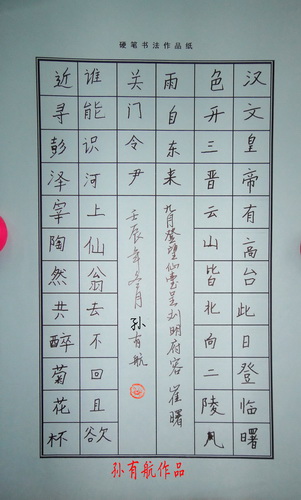 硬笔书法作品纸
汉文皇帝有高台此日登临曙
色开三晋云山皆北向二陵风
雨自东来
九月登望仙臺呈刘明府容 崔曙
关门令尹
壬辰年冬月 孙有航
谁能识河上仙翁去不回且欲
近寻彭泽宰陶然共醉菊花杯
孙有航作品